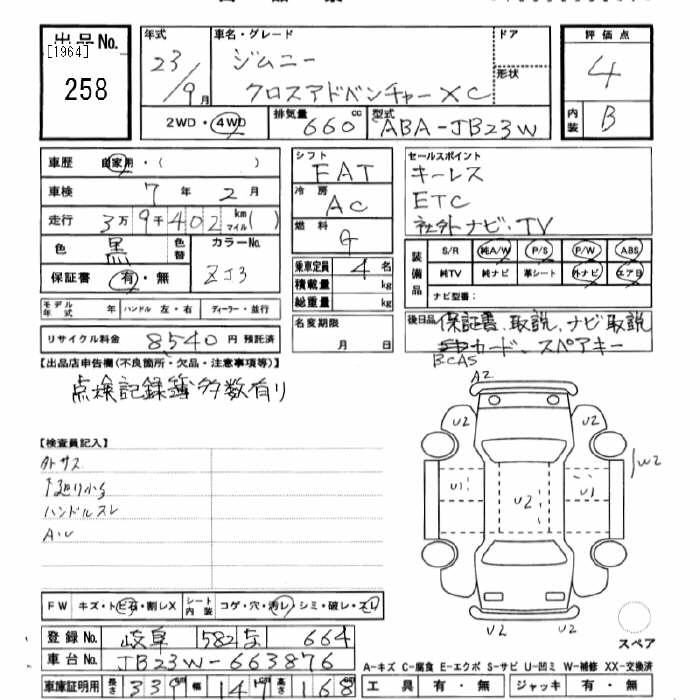 出品No.
[1964]
258
年式
23/9月
車名・グレード
ジムニー
クロスアドベンチャーXC
ドア
形状
2WD・4WD
排気量 660cc
型式 ABA-JB23W
評価点
4
内装 B
車歴 自家用・( )
車検 7年2月
走行 3万9千402km マイル( )
色 黒 色替
カラーNo. ZJ3
保証書 有・無
モデル年式 年 ハンドル 左・右 ディーラー・並行
リサイクル料金 8540円 預託済
シフト FAT
冷房 AC
燃料 G
乗車定員 4名
積載量 kg
総重量 kg
名変期限
月 日
セールスポイント
キーレス
ETC
社外ナビ・TV
装備品
S/R 純A/W P/S P/W ABS
純TV 純ナビ 革シート 外ナビ エアB
ナビ型番:
後日品 保証書、取説、ナビ取説
カード、スペアキー
B-CAS
【出品店申告欄(不良箇所・欠品・注意事項等)】
点検記録簿多数有り
【検査員記入】
外サス
下廻り小サ
ハンドルスレ
A・U
A2
U2 U2
U1 U2 U1
W2
U2 U2
スペア
FW キズ・トビ石・割レX
シート内装 コゲ・穴・汚レ・シミ・破レ・スレ
登録No. 岐阜 582 664
車台No. JB23W-663876
車庫証明用 長さ 339cm 幅 147cm 高さ 168cm
A-キズ C-腐食 E-エクボ S-サビ U-凹ミ W-補修 XX-交換済
工具 有・無 ジャッキ 有・無